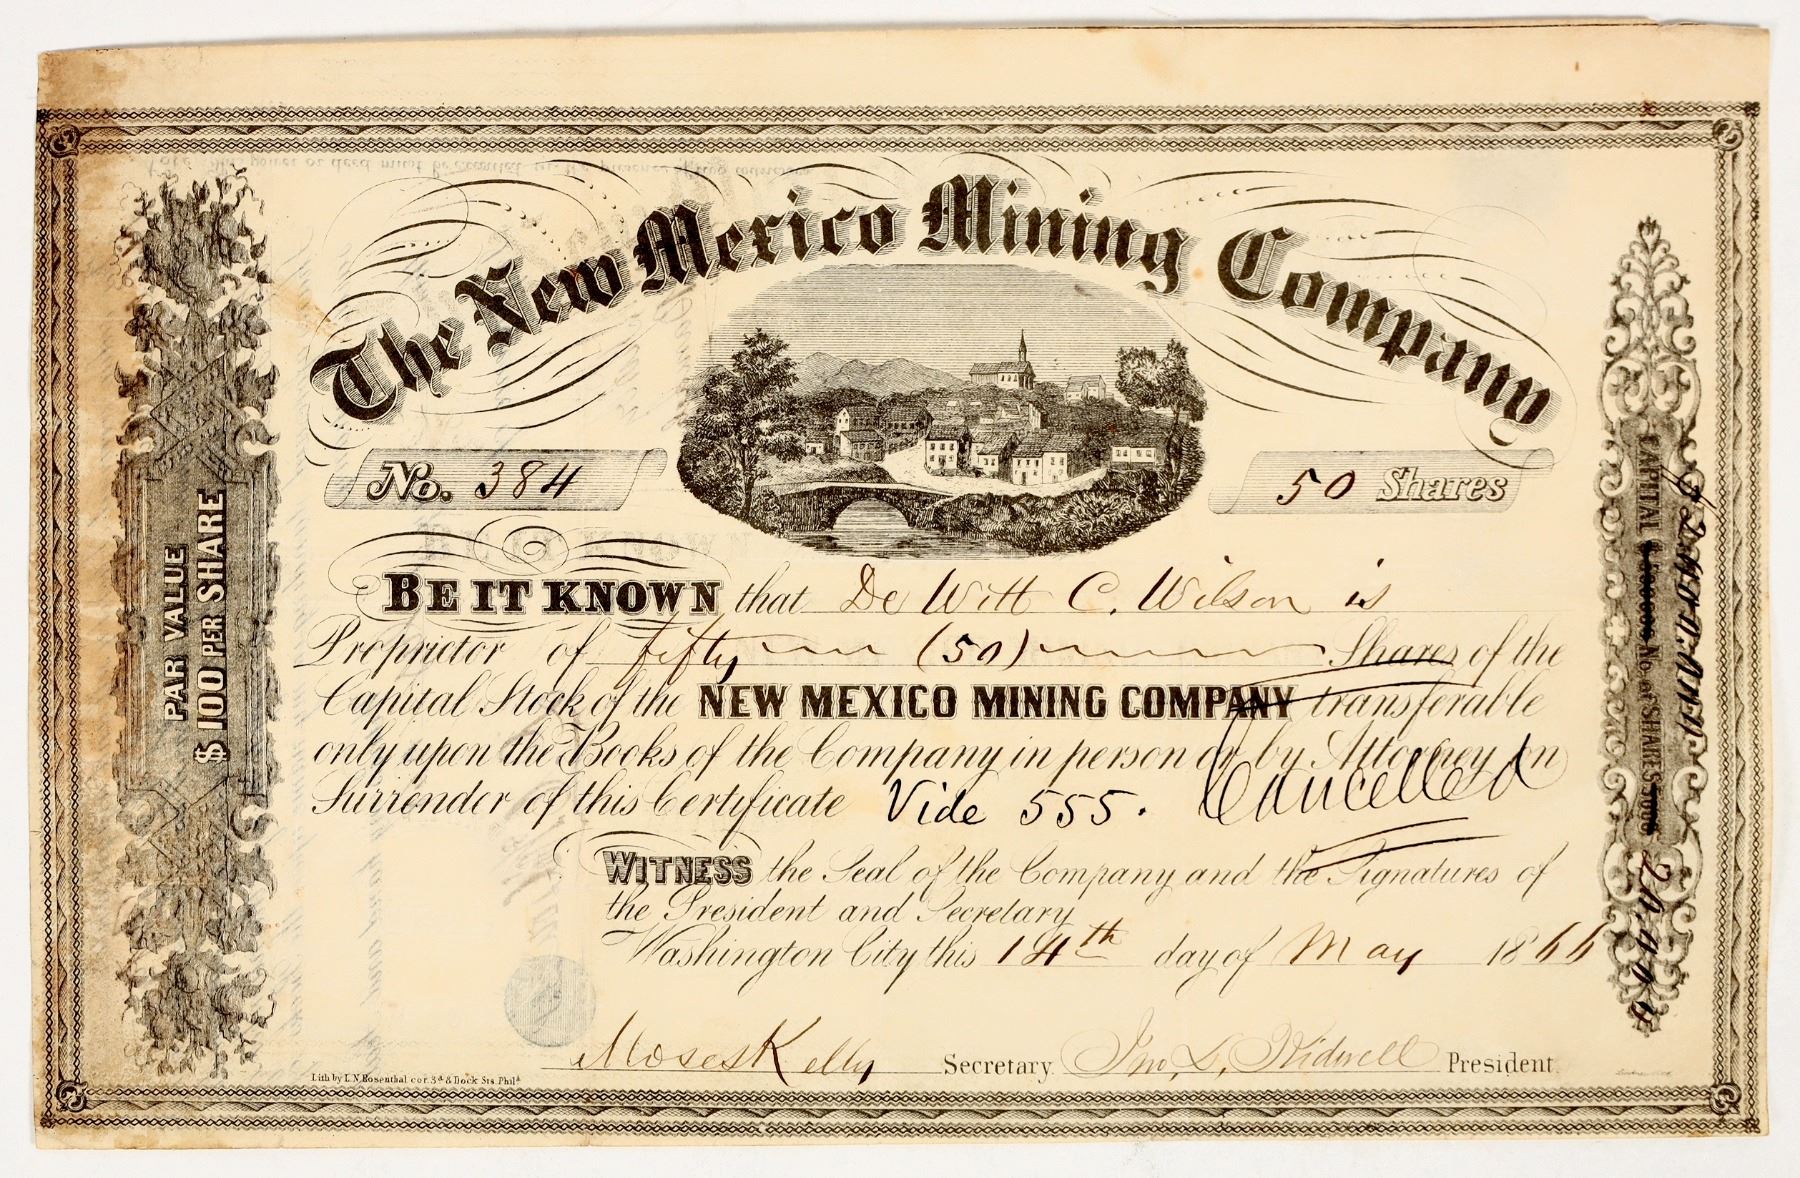 The New Mexico Mining Company
No. 384
50 Shares
BE IT KNOWN that De Witt C. Wilson is
Proprietor of fifty (50) Shares of the
Capital Stock of the NEW MEXICO MINING COMPANY transferable
only upon the Books of the Company in person or by Attorney on
Surrender of this Certificate Vide 555. Cancelled
WITNESS the Seal of the Company and the Signatures of
the President and Secretary
Washington City this 14th day of May 1866
Moses Kelly Secretary. Jno. L. Kidwell President.
Lith by L.N. Rosenthal cor. 3d & Dock Sts. Phila
PAR VALUE
$100 PER SHARE
CAPITAL No. of SHARES